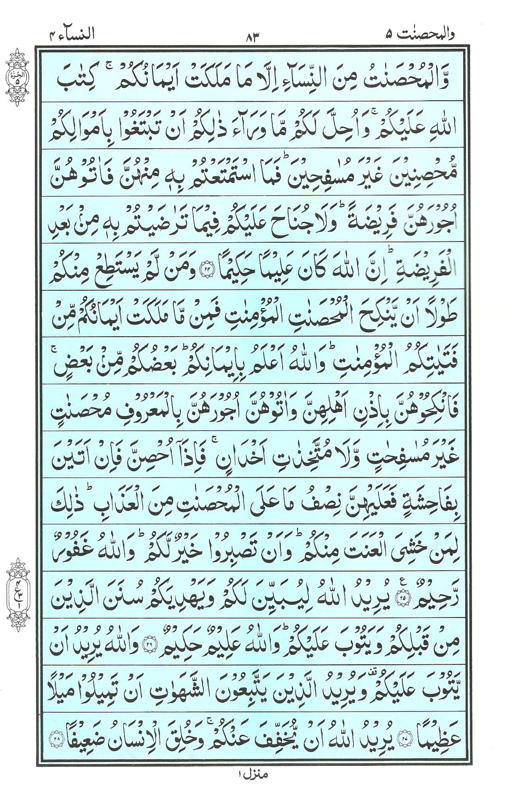 والمحصنت ۵
۸۳
النسآء ۴
وَّالْمُحْصَنٰتُ مِنَ النِّسَآءِ اِلَّا مَا مَلَكَتْ اَيْمَانُكُمْ ۚ كِتٰبَ
اللّٰهِ عَلَيْكُمْ ۚ وَاُحِلَّ لَكُمْ مَّا وَرَآءَ ذٰلِكُمْ اَنْ تَبْتَغُوْا بِاَمْوَالِكُمْ
مُّحْصِنِيْنَ غَيْرَ مُسٰفِحِيْنَ ؕ فَمَا اسْتَمْتَعْتُمْ بِهٖ مِنْهُنَّ فَاٰتُوْهُنَّ
اُجُوْرَهُنَّ فَرِيْضَةً ؕ وَلَا جُنَاحَ عَلَيْكُمْ فِيْمَا تَرٰضَيْتُمْ بِهٖ مِنْۢ بَعْدِ
الْفَرِيْضَةِ ؕ اِنَّ اللّٰهَ كَانَ عَلِيْمًا حَكِيْمًا ۝۲۴ وَمَنْ لَّمْ يَسْتَطِعْ مِنْكُمْ
طَوْلًا اَنْ يَّنْكِحَ الْمُحْصَنٰتِ الْمُؤْمِنٰتِ فَمِنْ مَّا مَلَكَتْ اَيْمَانُكُمْ مِّنْ
فَتَيٰتِكُمُ الْمُؤْمِنٰتِ ؕ وَاللّٰهُ اَعْلَمُ بِاِيْمَانِكُمْ ؕ بَعْضُكُمْ مِّنْۢ بَعْضٍ ۚ
فَانْكِحُوْهُنَّ بِاِذْنِ اَهْلِهِنَّ وَاٰتُوْهُنَّ اُجُوْرَهُنَّ بِالْمَعْرُوْفِ مُحْصَنٰتٍ
غَيْرَ مُسٰفِحٰتٍ وَّلَا مُتَّخِذٰتِ اَخْدَانٍ ۚ فَاِذَاۤ اُحْصِنَّ فَاِنْ اَتَيْنَ
بِفَاحِشَةٍ فَعَلَيْهِنَّ نِصْفُ مَا عَلَى الْمُحْصَنٰتِ مِنَ الْعَذَابِ ؕ ذٰلِكَ
لِمَنْ خَشِىَ الْعَنَتَ مِنْكُمْ ؕ وَاَنْ تَصْبِرُوْا خَيْرٌ لَّكُمْ ؕ وَاللّٰهُ غَفُوْرٌ
رَّحِيْمٌ ۝۲۵ يُرِيْدُ اللّٰهُ لِيُبَيِّنَ لَكُمْ وَيَهْدِيَكُمْ سُنَنَ الَّذِيْنَ
مِنْ قَبْلِكُمْ وَيَتُوْبَ عَلَيْكُمْ ؕ وَاللّٰهُ عَلِيْمٌ حَكِيْمٌ ۝۲۶ وَاللّٰهُ يُرِيْدُ اَنْ
يَّتُوْبَ عَلَيْكُمْ ۫ وَيُرِيْدُ الَّذِيْنَ يَتَّبِعُوْنَ الشَّهَوٰتِ اَنْ تَمِيْلُوْا مَيْلًا
عَظِيْمًا ۝۲۷ يُرِيْدُ اللّٰهُ اَنْ يُّخَفِّفَ عَنْكُمْ ۚ وَخُلِقَ الْاِنْسَانُ ضَعِيْفًا ۝۲۸
منزل ۱